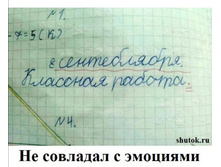 №1.
-7=5(К)
сентеблября.
Классная работа.
№4.
shutok.ru
Не совладал с эмоциями